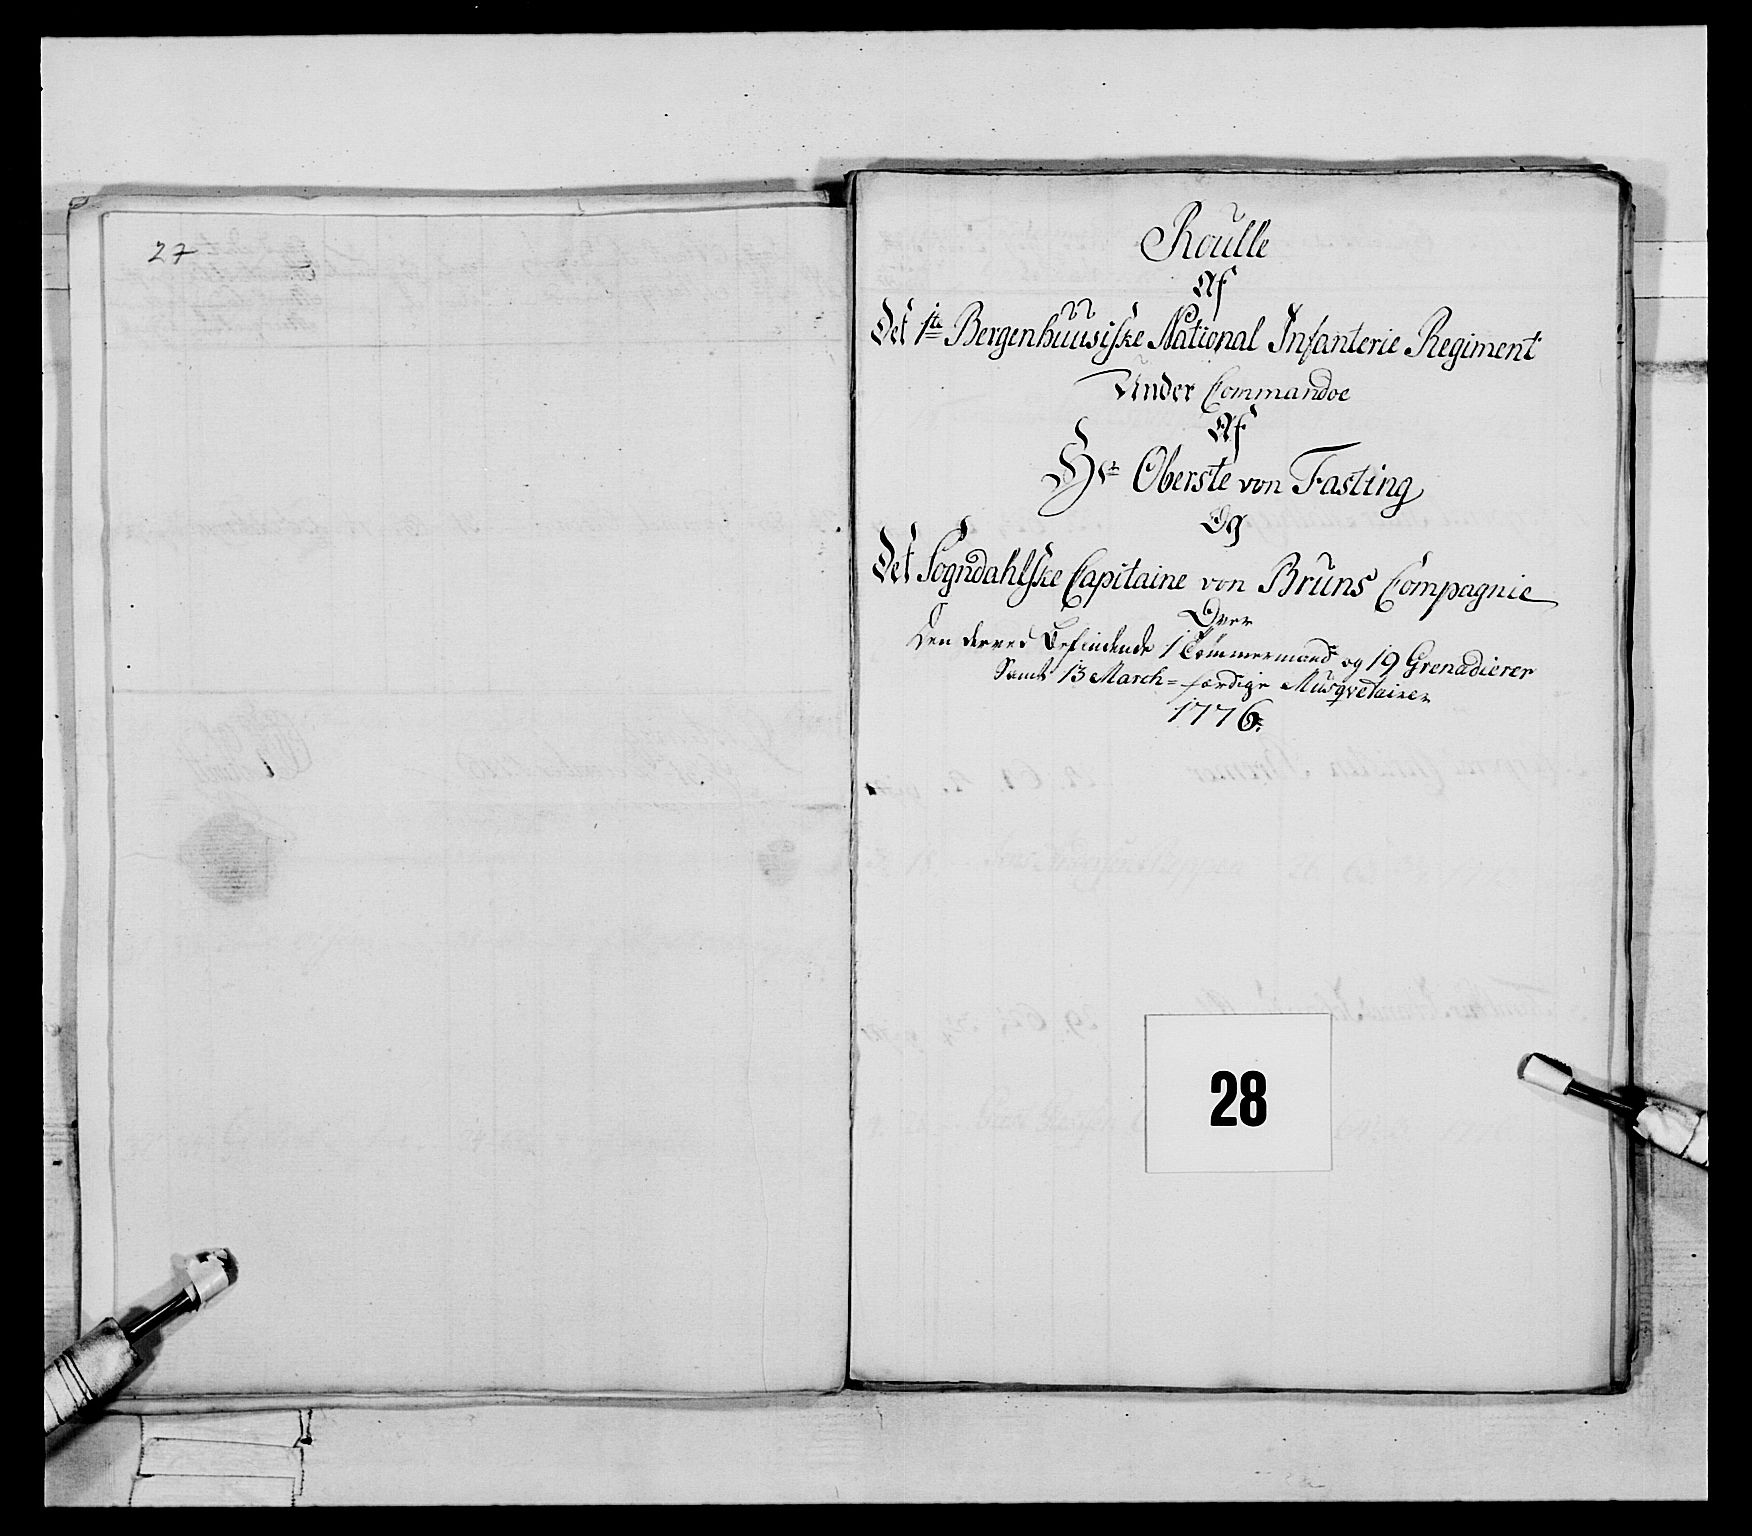 27
Roulle
Af
Det 1te Bergenhuusiske National Infanterie Regiment
Under Commandoe
Af
Hr Oberste von Fasting
Og
Det Sogndahlske Capitaine von Bruns Compagnie
Over
Den derved Befindende 1 Tømmermand og 19 Grenadierer
Samt 13 March=færdige Musqvetairer
1776.
28